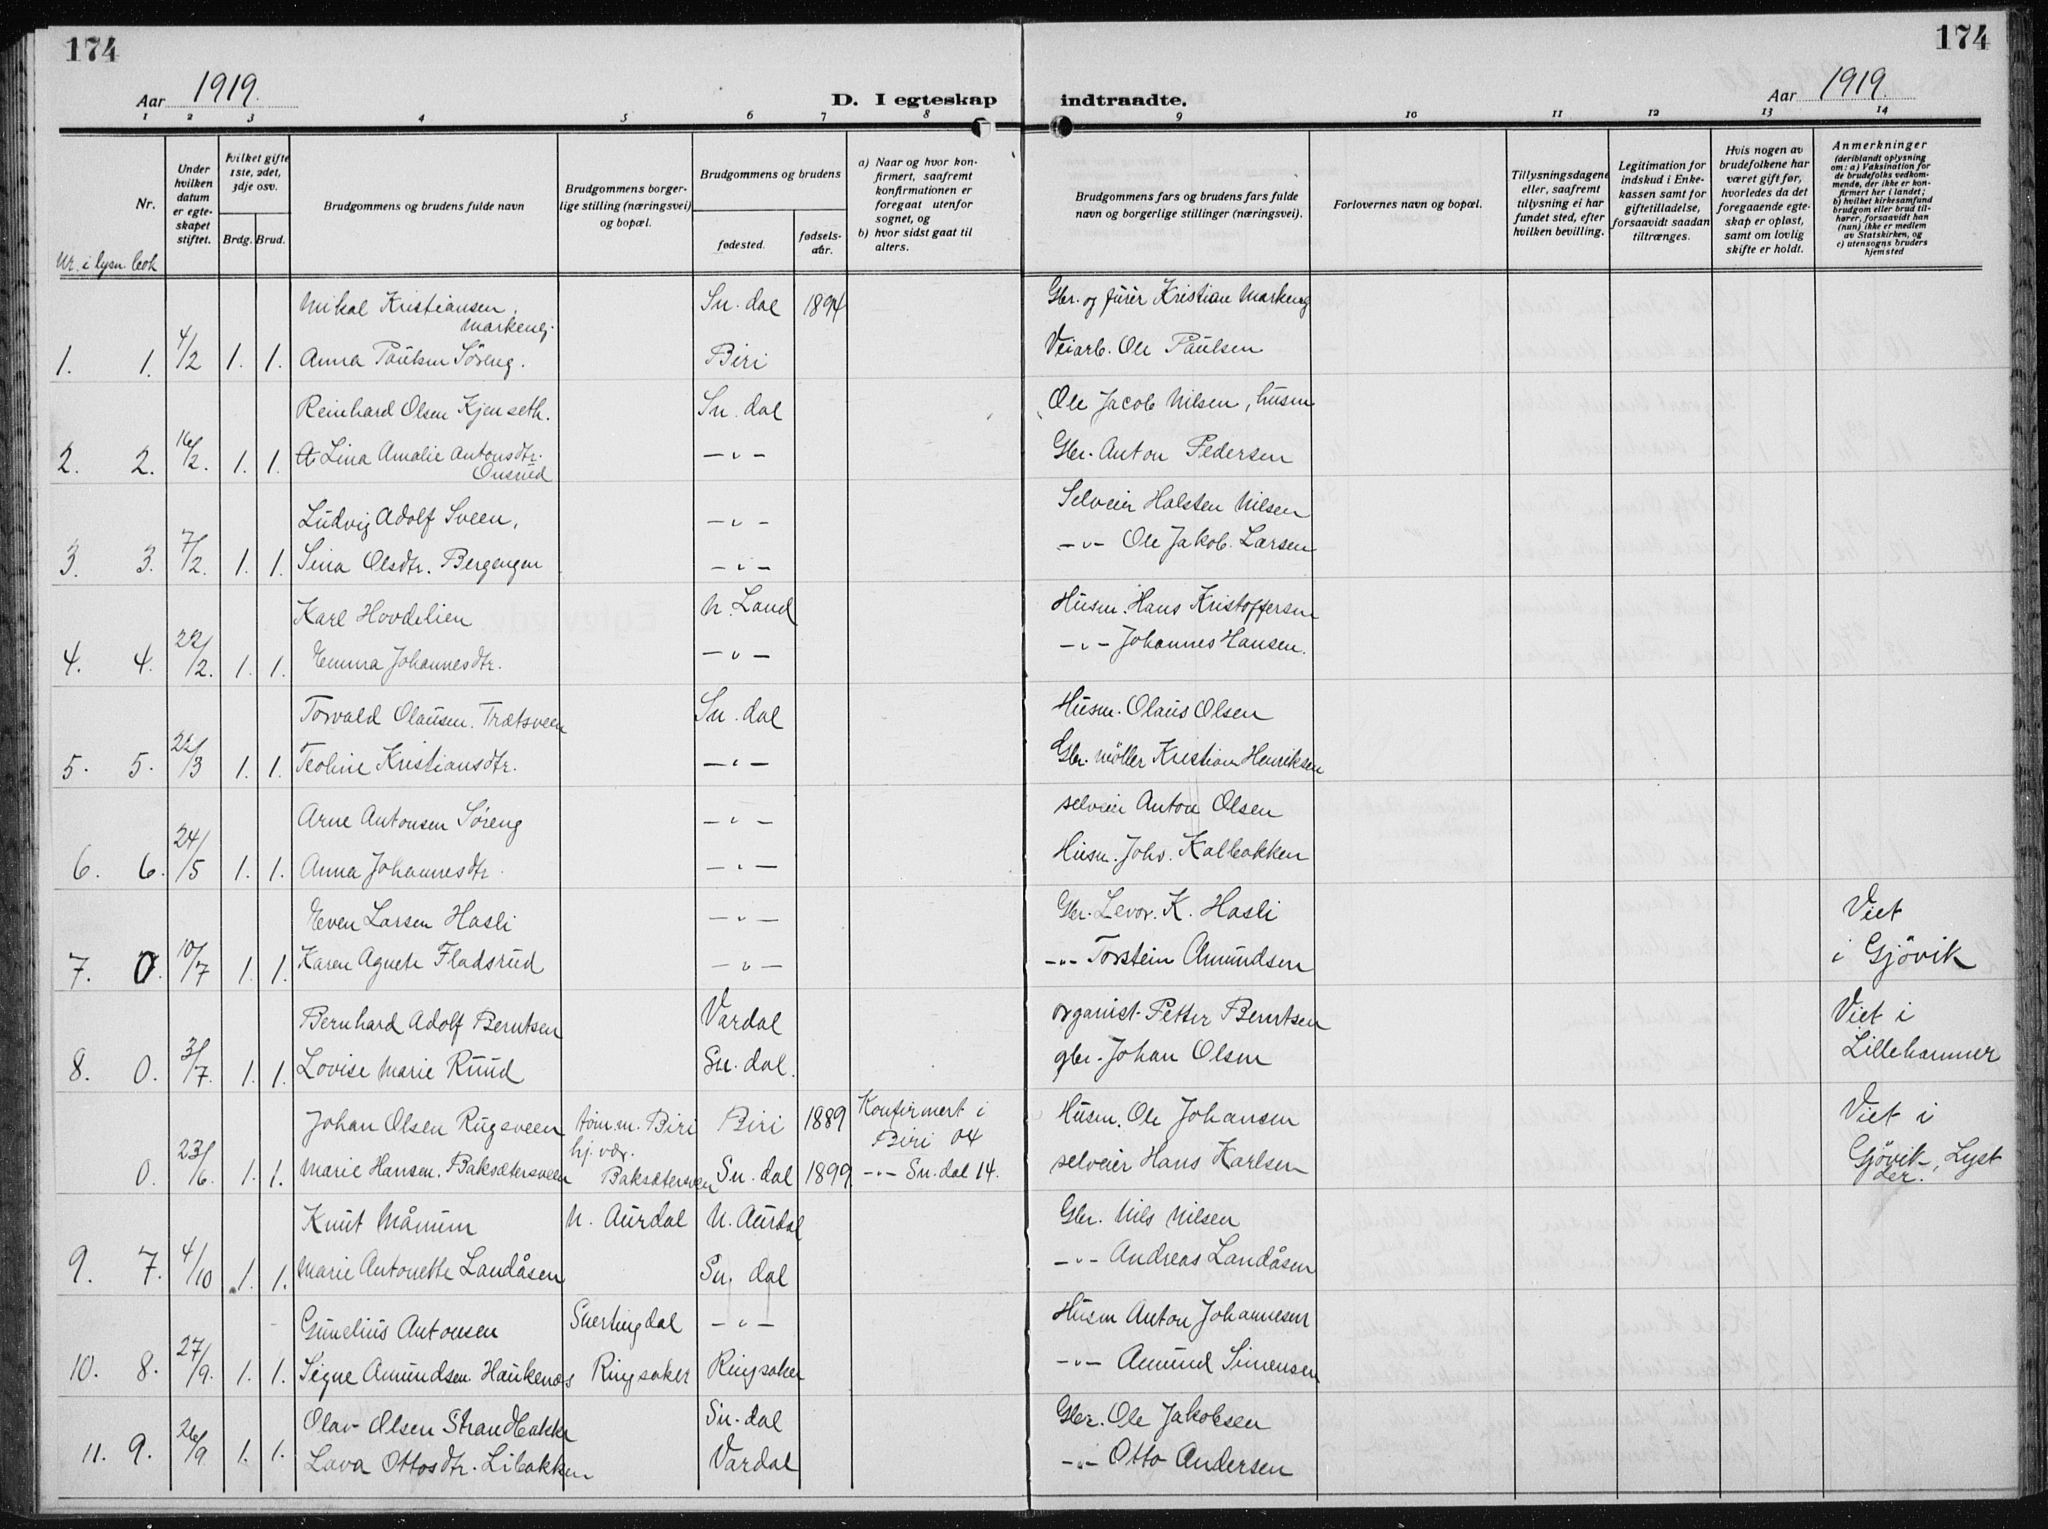 174
174
Aar 1919.
D. I egteskap indtraadte.
Aar 1919.
1 2 3 4 5 6 7 8 9 10 11 12 13 14
Nr. i lysn. bok
Nr.
Under hvilken datum er egteskapet stiftet.
Hvilket gifte 1ste, 2det, 3dje osv.
Brdg. Brud.
Brudgommens og brudens fulde navn
Brudgommens borgerlige stilling (næringsvei) og bopæl.
Brudgommens og brudens
fødested.
fødselsaar.
a) Naar og hvor konfirmert, saafremt konfirmationen er foregaat utenfor sognet, og
b) hvor sidst gaat til alters.
Brudgommens fars og brudens fars fulde navn og borgerlige stillinger (næringsvei).
Forlovernes navn og bopæl.
Tillysningsdagene eller, saafremt tillysning ei har fundet sted, efter hvilken bevilling.
Legitimation for indskud i Enkekassen samt for giftetilladelse, forsaavidt saadan tiltrænges.
Hvis nogen av brudefolkene har været gift før, hvorledes da det foregaaende egteskap er opløst, samt om lovlig skifte er holdt.
Anmerkninger
(deriblandt oplysning om: a) Vaksination for de brudefolks vedkommende, der ikke er konfirmert her i landet; b) hvilket kirkesamfund brudgom eller brud tilhører, forsaavidt han (hun) ikke er medlem av Statskirken, og c) utensogns bruders hjemsted
Mikal Kristiansen Markeng. Sn. dal 1894 Gbr. og furer Kristian Markeng
1. 1. 4/2 1. 1. Anna Paulsen Søreng. Biri Veiarb. Ole Paulsen
Reinhard Olsen Kjenseth. Sn. dal Ole Jacob Nilsen, husm
2. 2. 16/2. 1. 1. Lina Amalie Antonsdtr. Onsrud -"- Gbr. Anton Pedersen
Ludvig Adolf Sveen, -"- Selveier Halsten Nilsen
3. 3. 7/2. 1. 1. Sina Olsdtr. Bergengen -"- -"- Ole Jakob Larsen
Karl Hovdelien N. Land Husm. Hans Kristoffersen
4. 4. 22/2. 1. 1. Emma Johannesdtr. -"- -"- Johannes Hansen.
Torvald Olausen. Trætsveen Sn. dal Husm. Olaus Olsen
5. 5. 22/3 1. 1. Teoline Kristiansdtr. -"- Gbr. møller Kristian Henriksen
Arne Antonsen Søreng -"- selveier Anton Olsen
6. 6. 24/5 1. 1. Anna Johannesdtr. -"- Husm. Johs. Kalbakken
Even Larsen Hasli -"- Gbr. Levor. K. Hasli Viet
7. 0. 10/7 1. 1. Karen Agnete Fladsrud -"- -"- Torstein Amundsen i Gjövik
Bernhard Adolf Berntsen Vardal organist. Petter Berntsen Viet i
8. 0. 3/7. 1. 1. Lovise Marie Ruud Sn. dal. gbr. Johan Olsen Lillehammer
Johan Olsen Rugsveen tøm.m. Biri Biri 1889 Konfirmert i Biri 04 Husm. Ole Johansen Viet i
0. 23/6. 1. 1. Marie Hansen. Baksætersveen hj. vær. Baksætersveen Sn. dal 1899 -"- Sn. dal 14. selveier Hans Karlsen Gjövik, Lyst
Knut Månum N. Aurdal N. Aurdal Gbr. Nils Nilsen
9. 7. 4/10 1. 1. Marie Antonette Landåsen Sn. dal -"- Andreas Landåsen
Gunelius Antonsen Snertingdal -"- Husm Anton Johannesen
10. 8. 27/9. 1. 1. Signe Amundsen. Haukenæs Ringsaker Ringsaker -"- Amund Simensen
Olav Olsen Strandbakke Sn. dal Gbr. Ole Jakobsen
11. 9. 26/9 1. 1. Lava Ottosdtr. Libakken Vardal -"- Otto Andersen